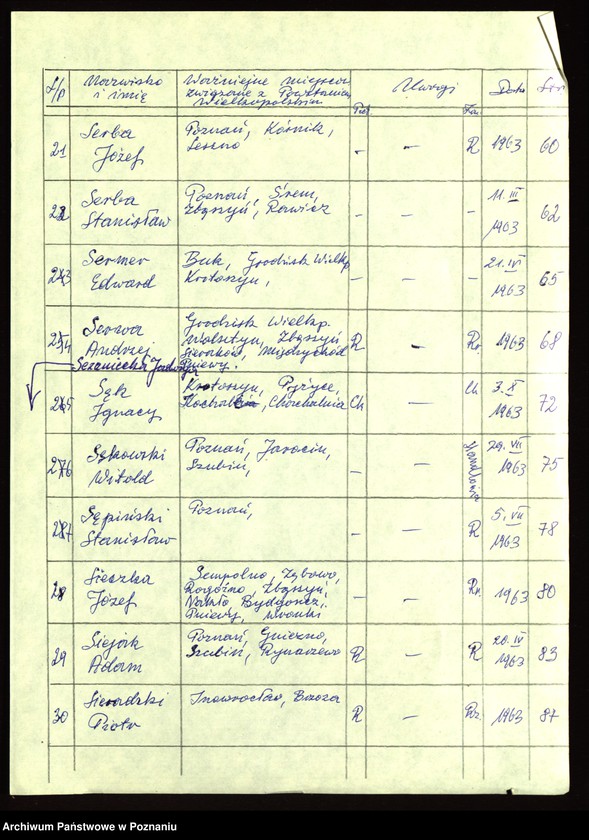 L/p Nazwisko i imię Ważniejsze miejsca związane z Powstaniem Wielkopolskim Uwagi Data Str
21 Serba Józef Poznań, Kórnik, Leszno - - R 1963 60
22 Serba Stanisław Poznań, Śrem, Zbąszyń, Rawicz - - - 11.III 1963 62
23 Sermer Edward Buk, Grodzisk Wielkp. Krotoszyn, - - - 21.IV 1963 65
24 Serwa Andrzej Grodzisk Wielkp. Wolsztyn, Zbąszyń, Sieraków, Międzychód Pniewy. R - 1963 68
Jadwiga
25 Sęk Ignacy Krotoszyn, Chachalnia Ch - Ch 3.X 1963 72
26 Sękowski Witold Poznań, Jarocin, Szubin, - - 29.VII 1963 75
27 Sępiński Stanisław Poznań, - - R 5.VII 1963 78
28 Sieszka Józef Rogoźno, Zbąszyń, Nakło, Bydgoszcz, Pniewy, Wronki - - 1963 80
29 Siejak Adam Poznań, Gniezno, Szubin, Rynarzewo R - R 20.IV 1963 83
30 Sieradzki Piotr Inowrocław, Brzoza R - 1963 87
Archiwum Państwowe w Poznaniu